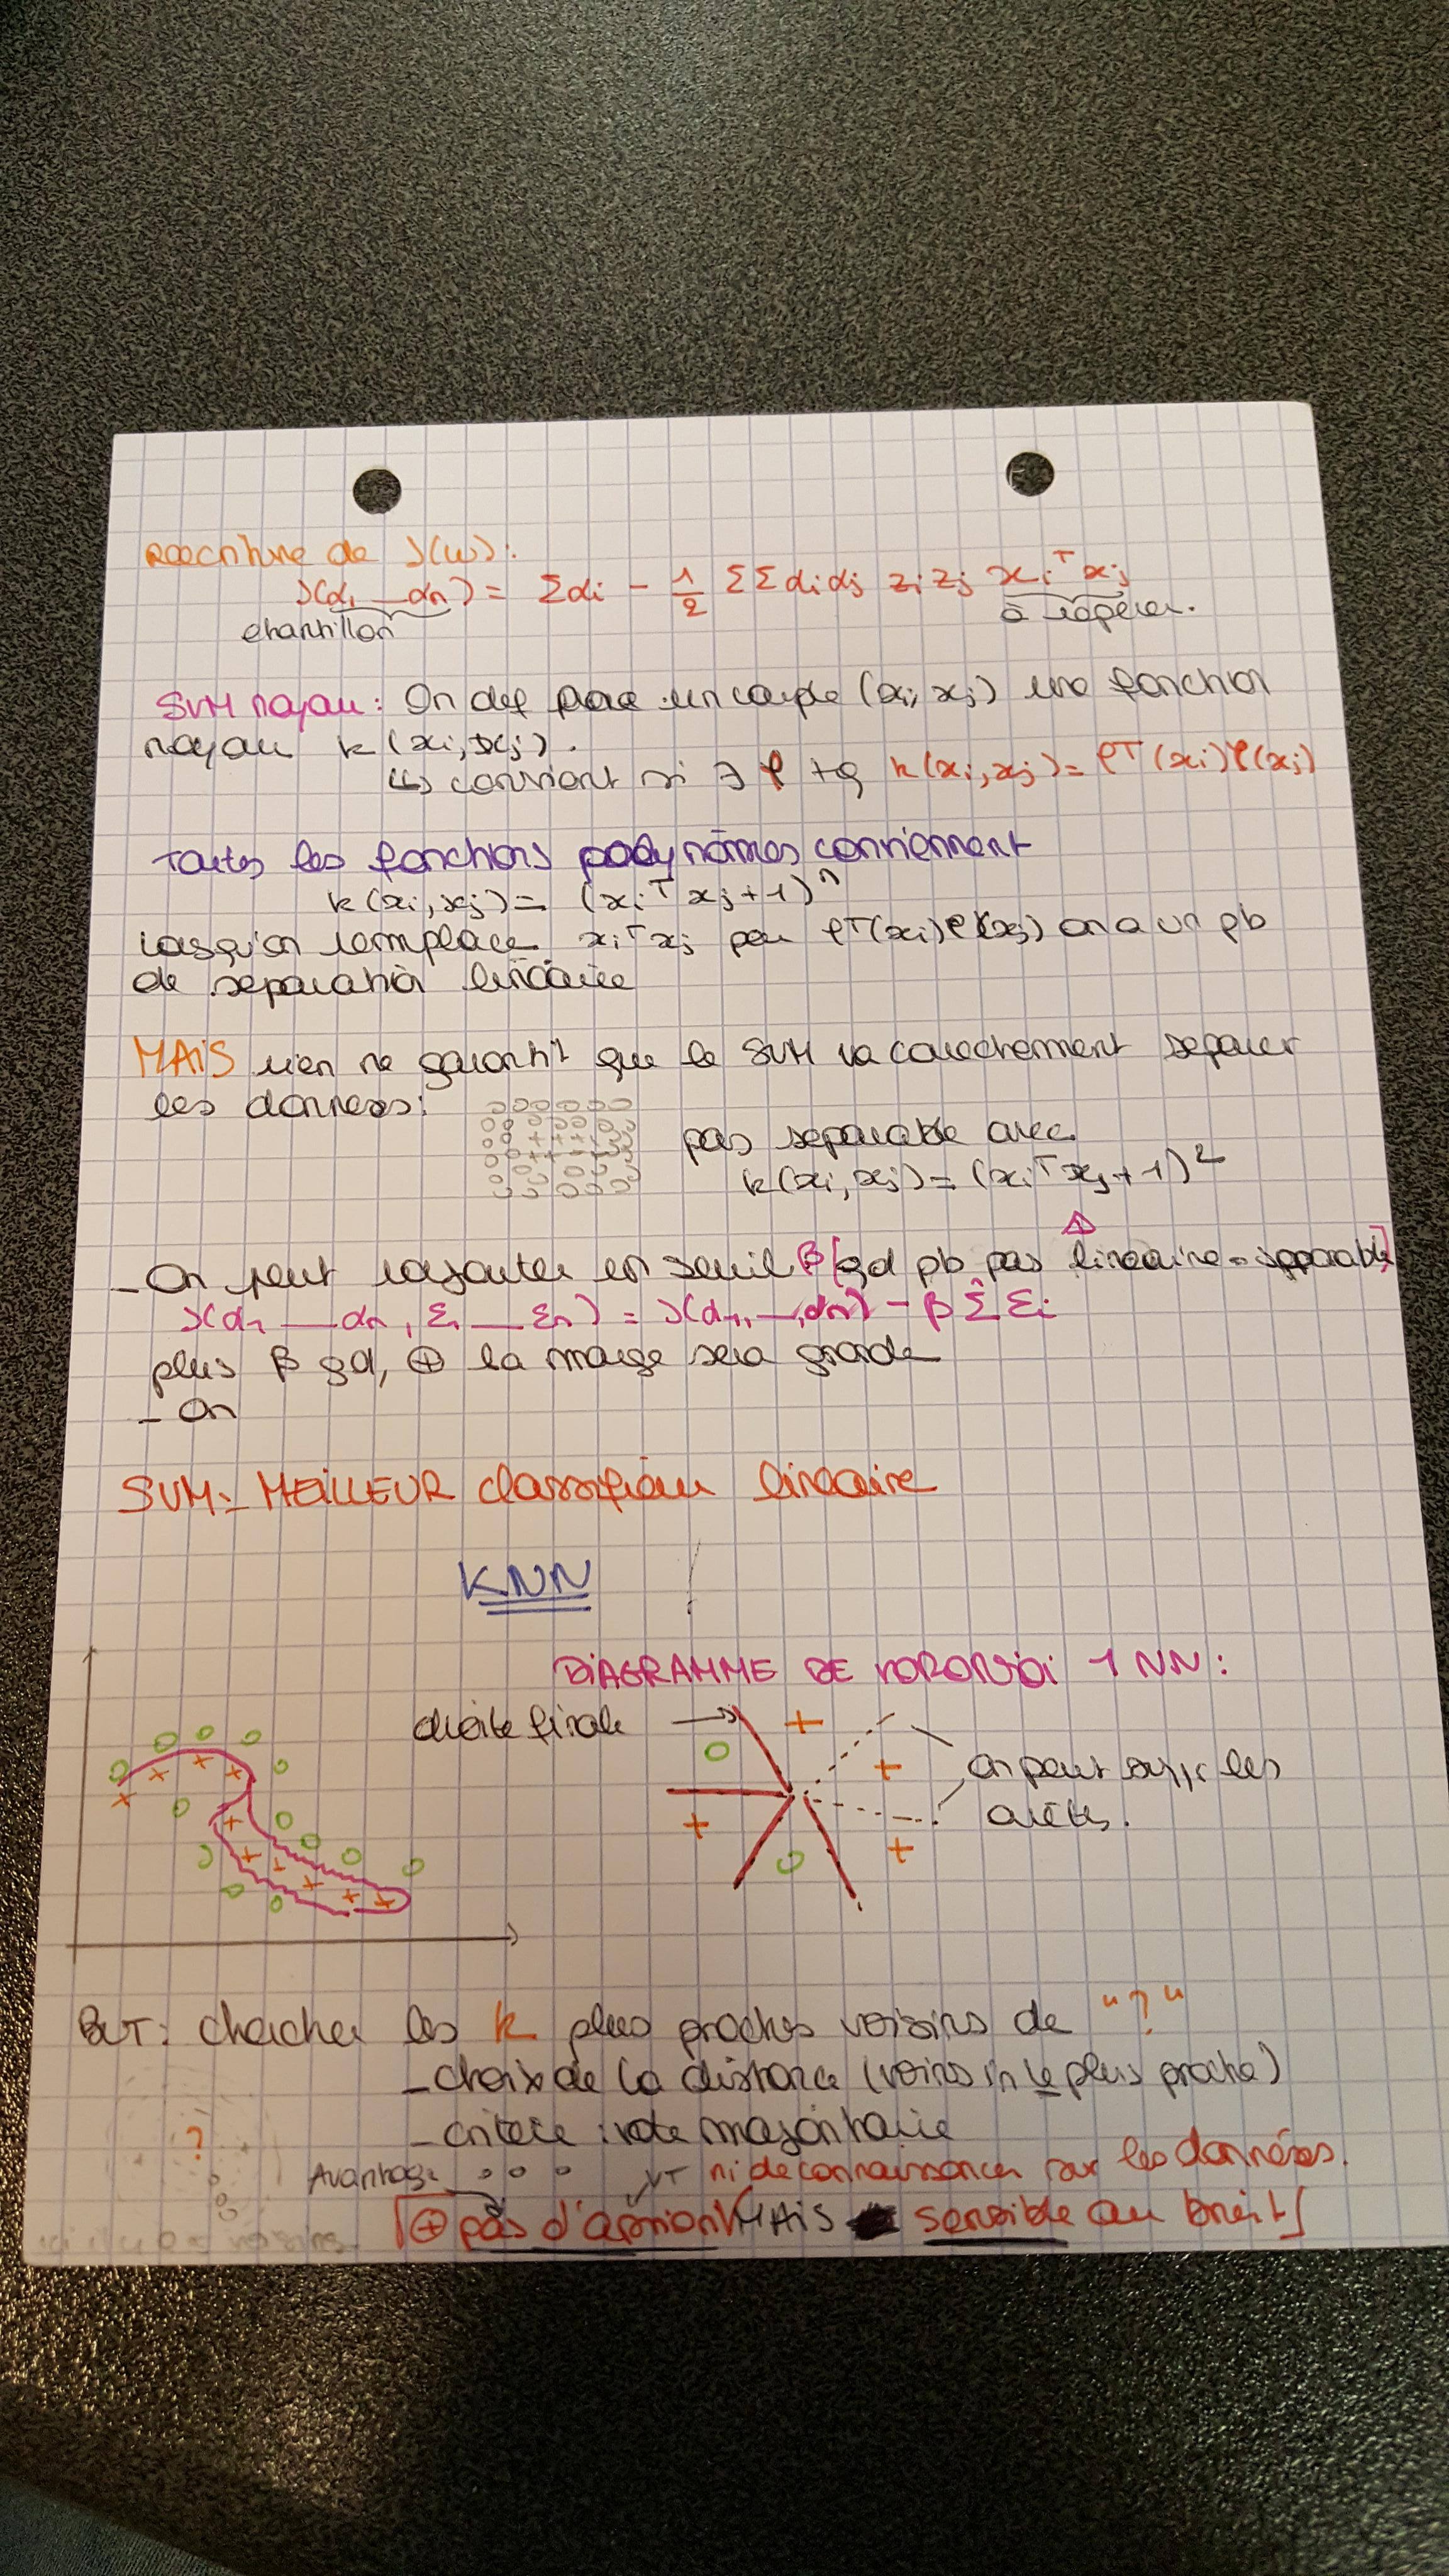 Reecriture de J(w):
J(α1 __ αn) = Σαi - 1/2 ΣΣαiαj zizj xiᵀxj
echantillon
à repérer.
SVM noyau: On def pour un couple (xi, xj) une fonction
noyau k(xi, xj).
↳ convient si ∃ φ tq k(xi, xj) = φᵀ(xi)φ(xj)
Toutes les fonctions polynômes conviennent
k(xi, xj) = (xiᵀxj + 1)ⁿ
lorsqu'on remplace xiᵀxj par φᵀ(xi)φ(xj) on a un pb
de separation linéaire
MAiS rien ne garantit que le SVM va correctement separer
les données:
pas separable avec
k(xi, xj) = (xiᵀxj + 1)²
- On peut rajouter un seuil β [qd pb pas lineaire separable]
J(α1 __ αn, ξ1 __ ξn) = J(α1, __, αn) - β Σ ξi
plus β gd, ⊕ la marge sera grande
- On
SVM: MEiLLEUR classifieur linéaire
KNN
DiAGRAMME DE VORONOi 1 NN:
droite finale
on peut supp les
arêtes.
BUT: chercher les k plus proches voisins de "?"
- choix de la distance (voisin le plus proche)
- critère : vote majoritaire
?
Avantage
ni de connaissances sur les données.
[⊕ pas d'apriori MAiS sensible au bruit]